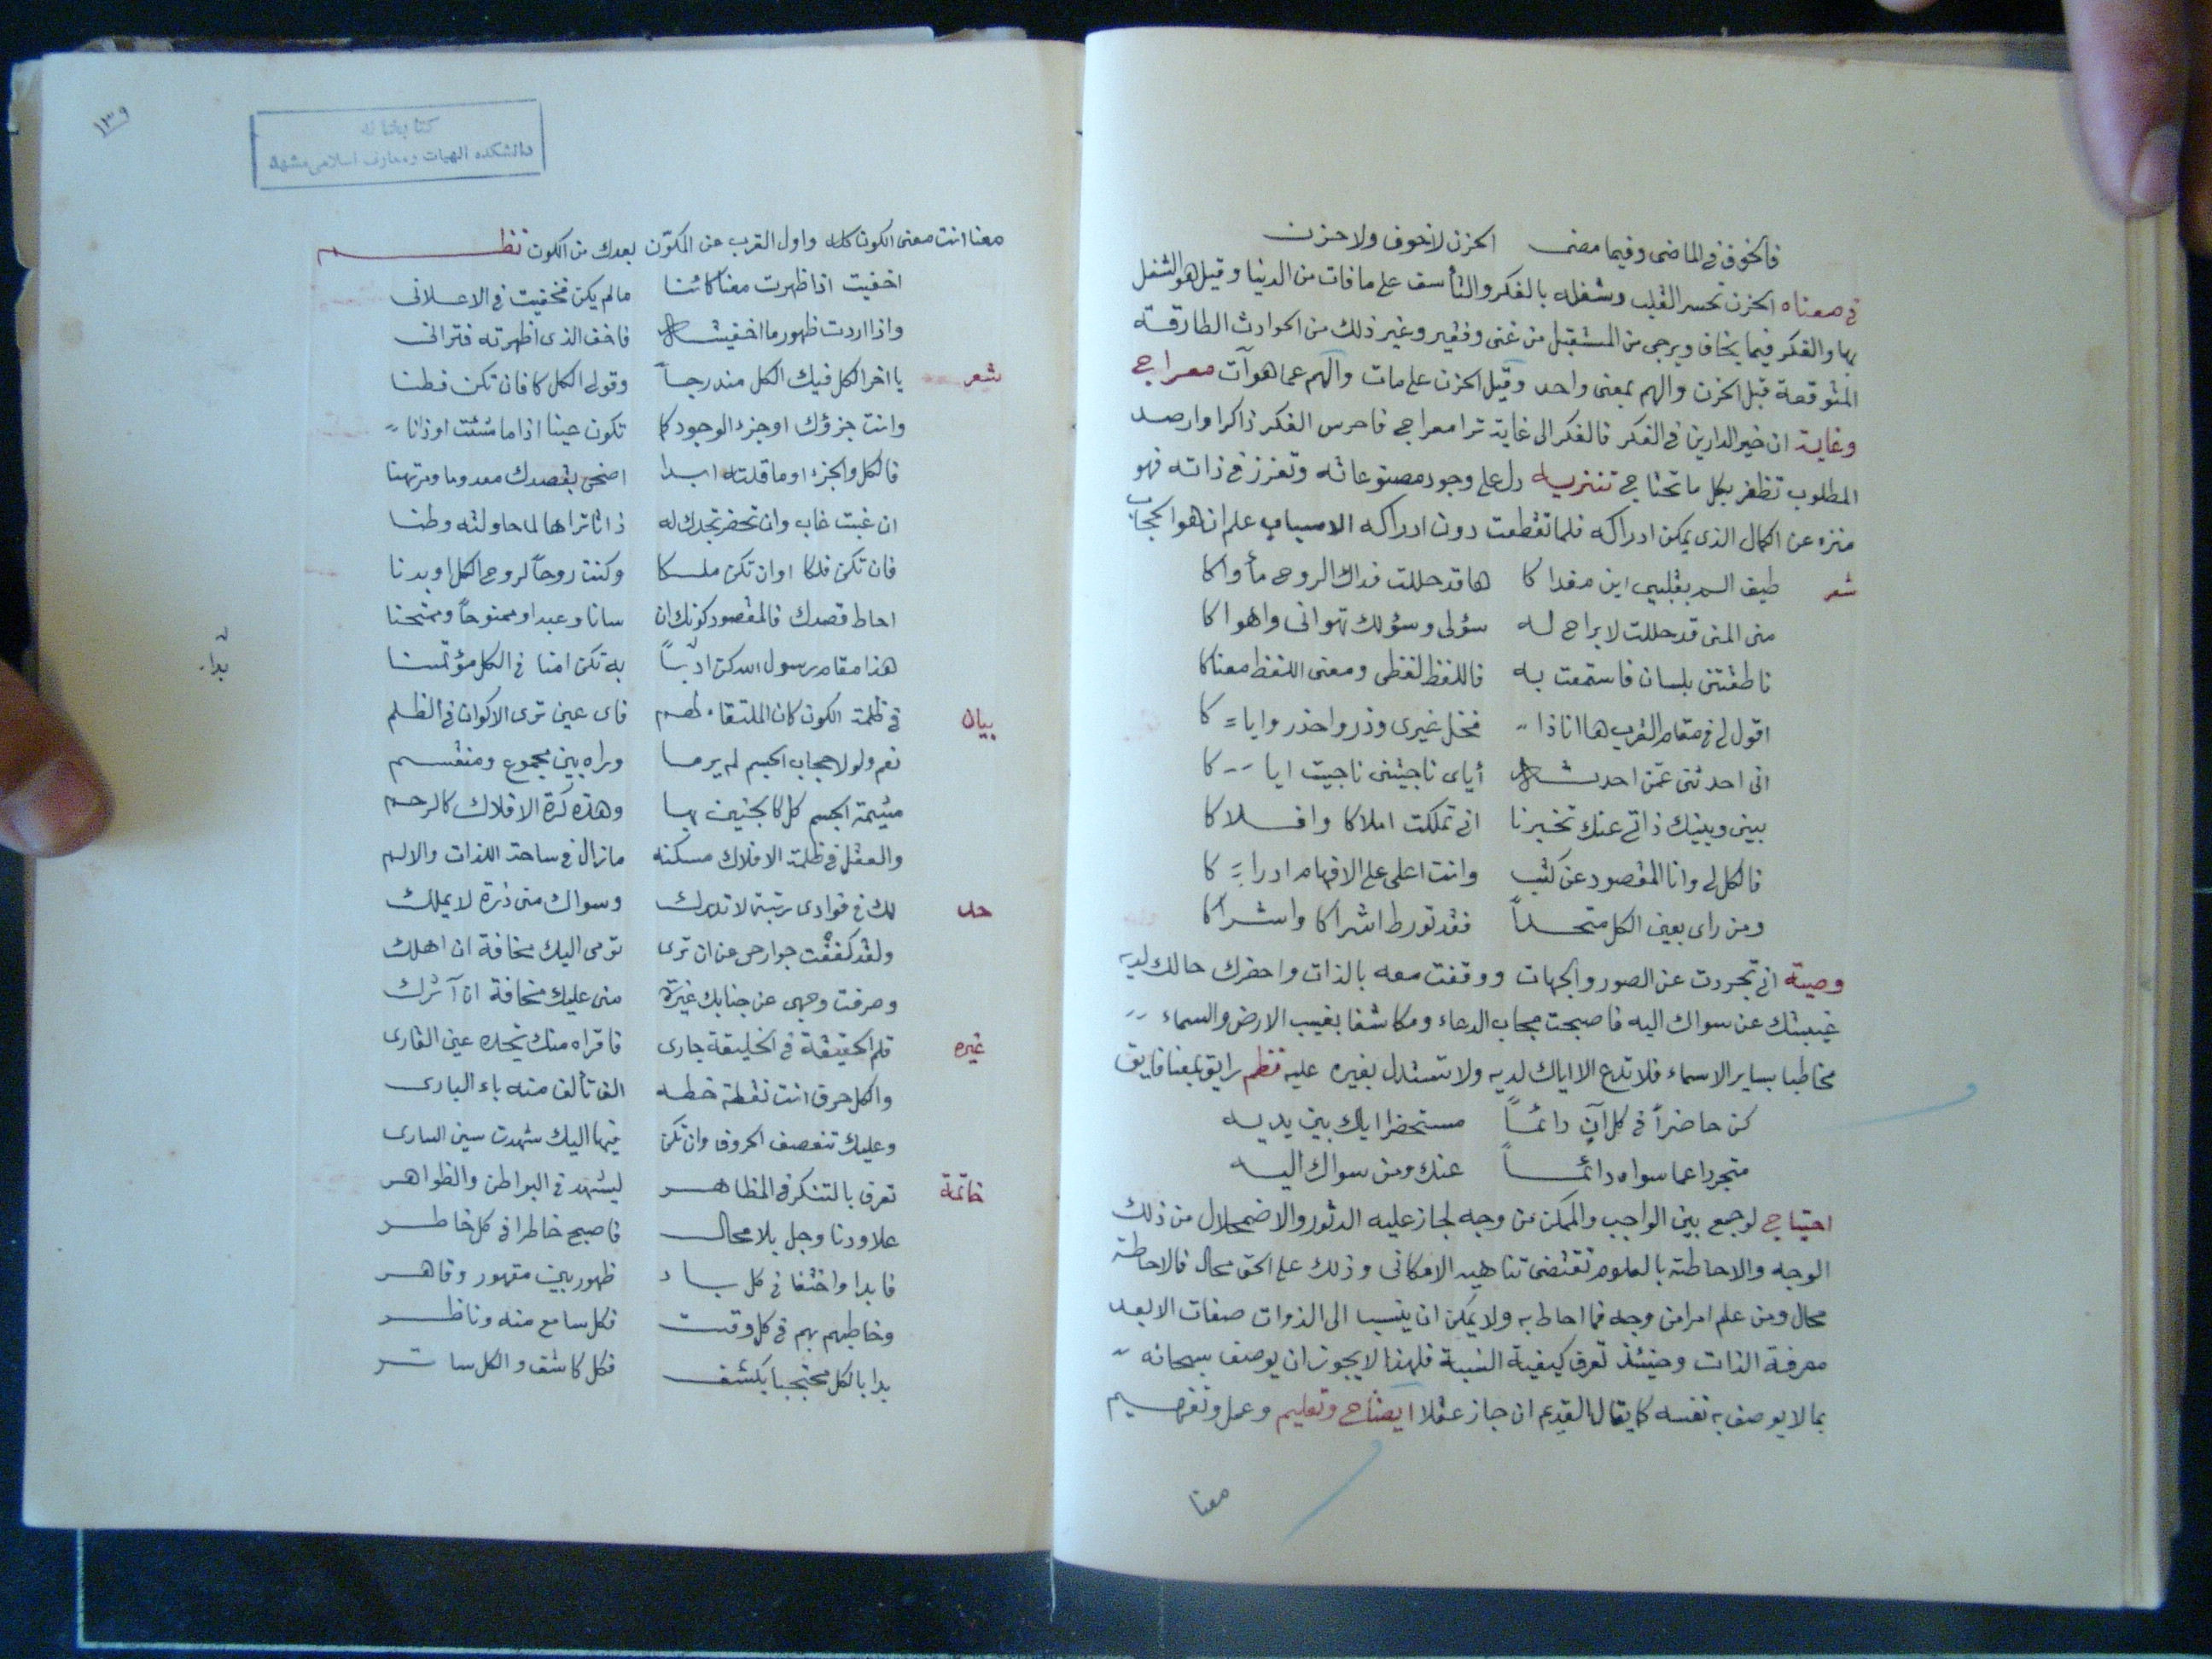 فالخوف في الماضى وفيما مضى الحزن لاخوف ولاحزن
في معناه الحزن تحسر القلب وشغله بالفكر والتأسف على مافات من الدينا وقيل هو الشغل
بها والفكر فيما يخاف ويرجى من المستقبل من غنى وفقير وغير ذلك من الحوادث الطارقة
المتوقعة قبل الحزن والهم بمعنى واحد وقيل الحزن على مات والهم عما هوآت معراج
وغاية ان خير الدارين في الفكر فالفكر الى غاية ترا معراجى فاحرس الفكر ذاكرا وارصد
المطلوب تظفر بكل ماتحتاج تنزيه دل على وجود مصنوعاته وتعزز في ذاته فهو
منزه عن الكمال الذى يمكن ادراكه فلما تقطعت دون ادراكه الاسباب علم ان هو الحجاب
شعر طيف الم بقلبى اين مغداكا هاقد حللت فداك الروح مأواكا
منى المنى قد حللت لابراح له سؤلى وسؤلك تهوانى واهواكا
ناطقتنى بلسان فاستمعت به فاللفظ لفظى ومعنى اللفظ معناكا
اقول لى في مقام القرب ها اناذا فخل غيرى وذر واحذر واياكا
انى احدثنى عمن احدثه أياى ناجيتنى ناجيت اياكا
بينى وبينك ذاتى عنك تخبرنا انى تملكت املاكا وافلاكا
فالكل لى وانا المقصود عن كثب وانت اعلى على الافهام ادراكا
ومن راى بعين الكل متحداً فقد تورط اشراكا واشراكا
وصية انى تجردت عن الصور والجهات ووقفت معه بالذات واحضرك حالك لديه
غيبتك عن سواك اليه فاصبحت مجاب الدعاء ومكاشفا بغيب الارض والسماء
مخاطبا بساير الاسماء فلا تدع الا اياك لديه ولا تستدل بغيره عليه نظم رايق بمعنا فايق
كن حاضراً في كل آن دائماً مستحضرا اياك بين يديه
متجردا عما سواه دائماً عنك ومن سواك اليه
احتياج لوجمع بين الواجب والممكن من وجه لجاز عليه الدثور والاضمحلال من ذلك
الوجه والاحاطة بالعلوم تقتضى تناهيه الامكانى وذلك على الحق محال فالاحاطة
محال ومن علم امرا من وجه فما احاط به ولا يمكن ان ينسبا الى الذوات صفات الابعد
معرفة الذات وحينئذ تعرف كيفية النسبة فلهذا لايجوز ان يوصف سبحانه
بما لا يوصف به نفسه كما يقال القديم ان جاز عقلا ايضاح وتعليم وعمل وتفهيم
معنا
١٣٩
كتابخانه
دانشكده الهيات ومعارف اسلامى مشهد
معنا انت معنى الكون كله واول القرب من المكوّن بعدك من الكون نظم
اخفيت اذا ظهرت معنا كائنا مالم يكن فخفيت في الاعلانى
واذا اردت ظهور ما اخفيته فاخف الذى اظهرته فترانى
شعر يا اخر الكل فيك الكل مندرجاً وقولى الكل كا فان تكن فطنا
وانت جزؤك اوجزء الوجود كما تكون حينا اذا ما شئت اوذانا
فالكل والجزء اوما قلته ابدا اضحى بقصدك معدوما ومرتهنا
ان غبت غاب وان تحضر تجدك له ذاتا تراها لما حاولته وطنا
فان تكن فلكا اوان تكن ملكا وكنت روحاً لروح الكل اوبدنا
احاط قصدك فالمقصود كونك ان سانا وعبدا وممنوحاً وممتحنا
هذا مقام رسول الله كن ادباً به تكن امنا في الكل مؤتمنا
بدا
بيان في ظلمة الكون كان الملتقاء لهم فاى عين ترى الاكوان في الظلم
نعم ولولا حجاب الجسم لم يرما وراه بين مجموع ومنقسم
مشيمة الجسم كل كالجنين بها وهذه كرة الافلاك كالرحم
والعقل في ظلمة الافلاك مسكنه مازال في ساحة اللذات والالم
حد لك في فوادى رتبة لاتدرك وسواك منى ذرة لا يملك
ولقد كففت جوارحى عن ان ترى ترمى اليك مخافة ان اهلك
وصرفت وجهى عن جنابك غيرة منى عليك مخافة ان آشرك
غيره قلم الحقيقة في الخليقة جارى فاقراه منك تجده عين القارى
والكل حرف انت نقطة خطه الف تألف منه باء البارى
وعليك تنعصف الحروف وان تكن فيها اليك شهدت سين السارى
خاتمة تعرف بالتنكر في المظاهر ليشهد في البواطن والظواهر
علا ودنا وجل بلا محال فاصبح خاطرا في كل خاطر
فابدا واختفا في كل باد ظهور بين مقهور وقاهر
وخاطبهم بهم في كل وقت فكل سامع منه وناظر
بدا بالكل محتجبا بكشف فكل كاشف والكل ساتر